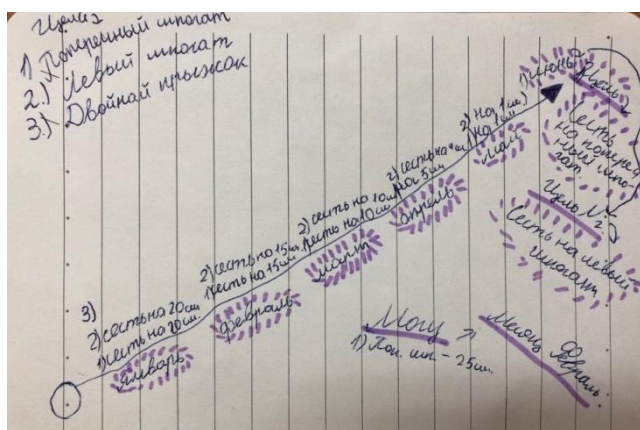 Цели
1) Поперечный шпагат
2.) Левый шпагат
3.) Двойной прыжок
3)
2) сесть на 20 см
1) сесть на 20 см.
Январь
2) сесть на 15 см.
1) сесть на 15 см.
Февраль
2) сесть на 10 см
1) сесть на 10 см.
Март
2) сесть на
на 5 см
Апрель
2) на 1 см.
1) на 1 см.
Май
Июнь
Цель
Сесть
на попереч
ный шпа
гат.
Цель №
2
Сесть на левый
шпагат
Могу
1) Поп. шп. - 25 см.
Месяц
Февраль.